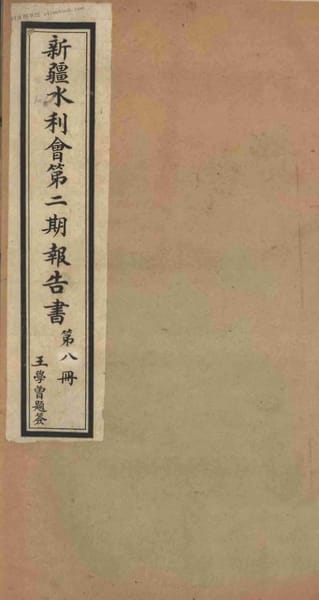 新疆水利會第二期報告書
第八冊
王學曾題簽